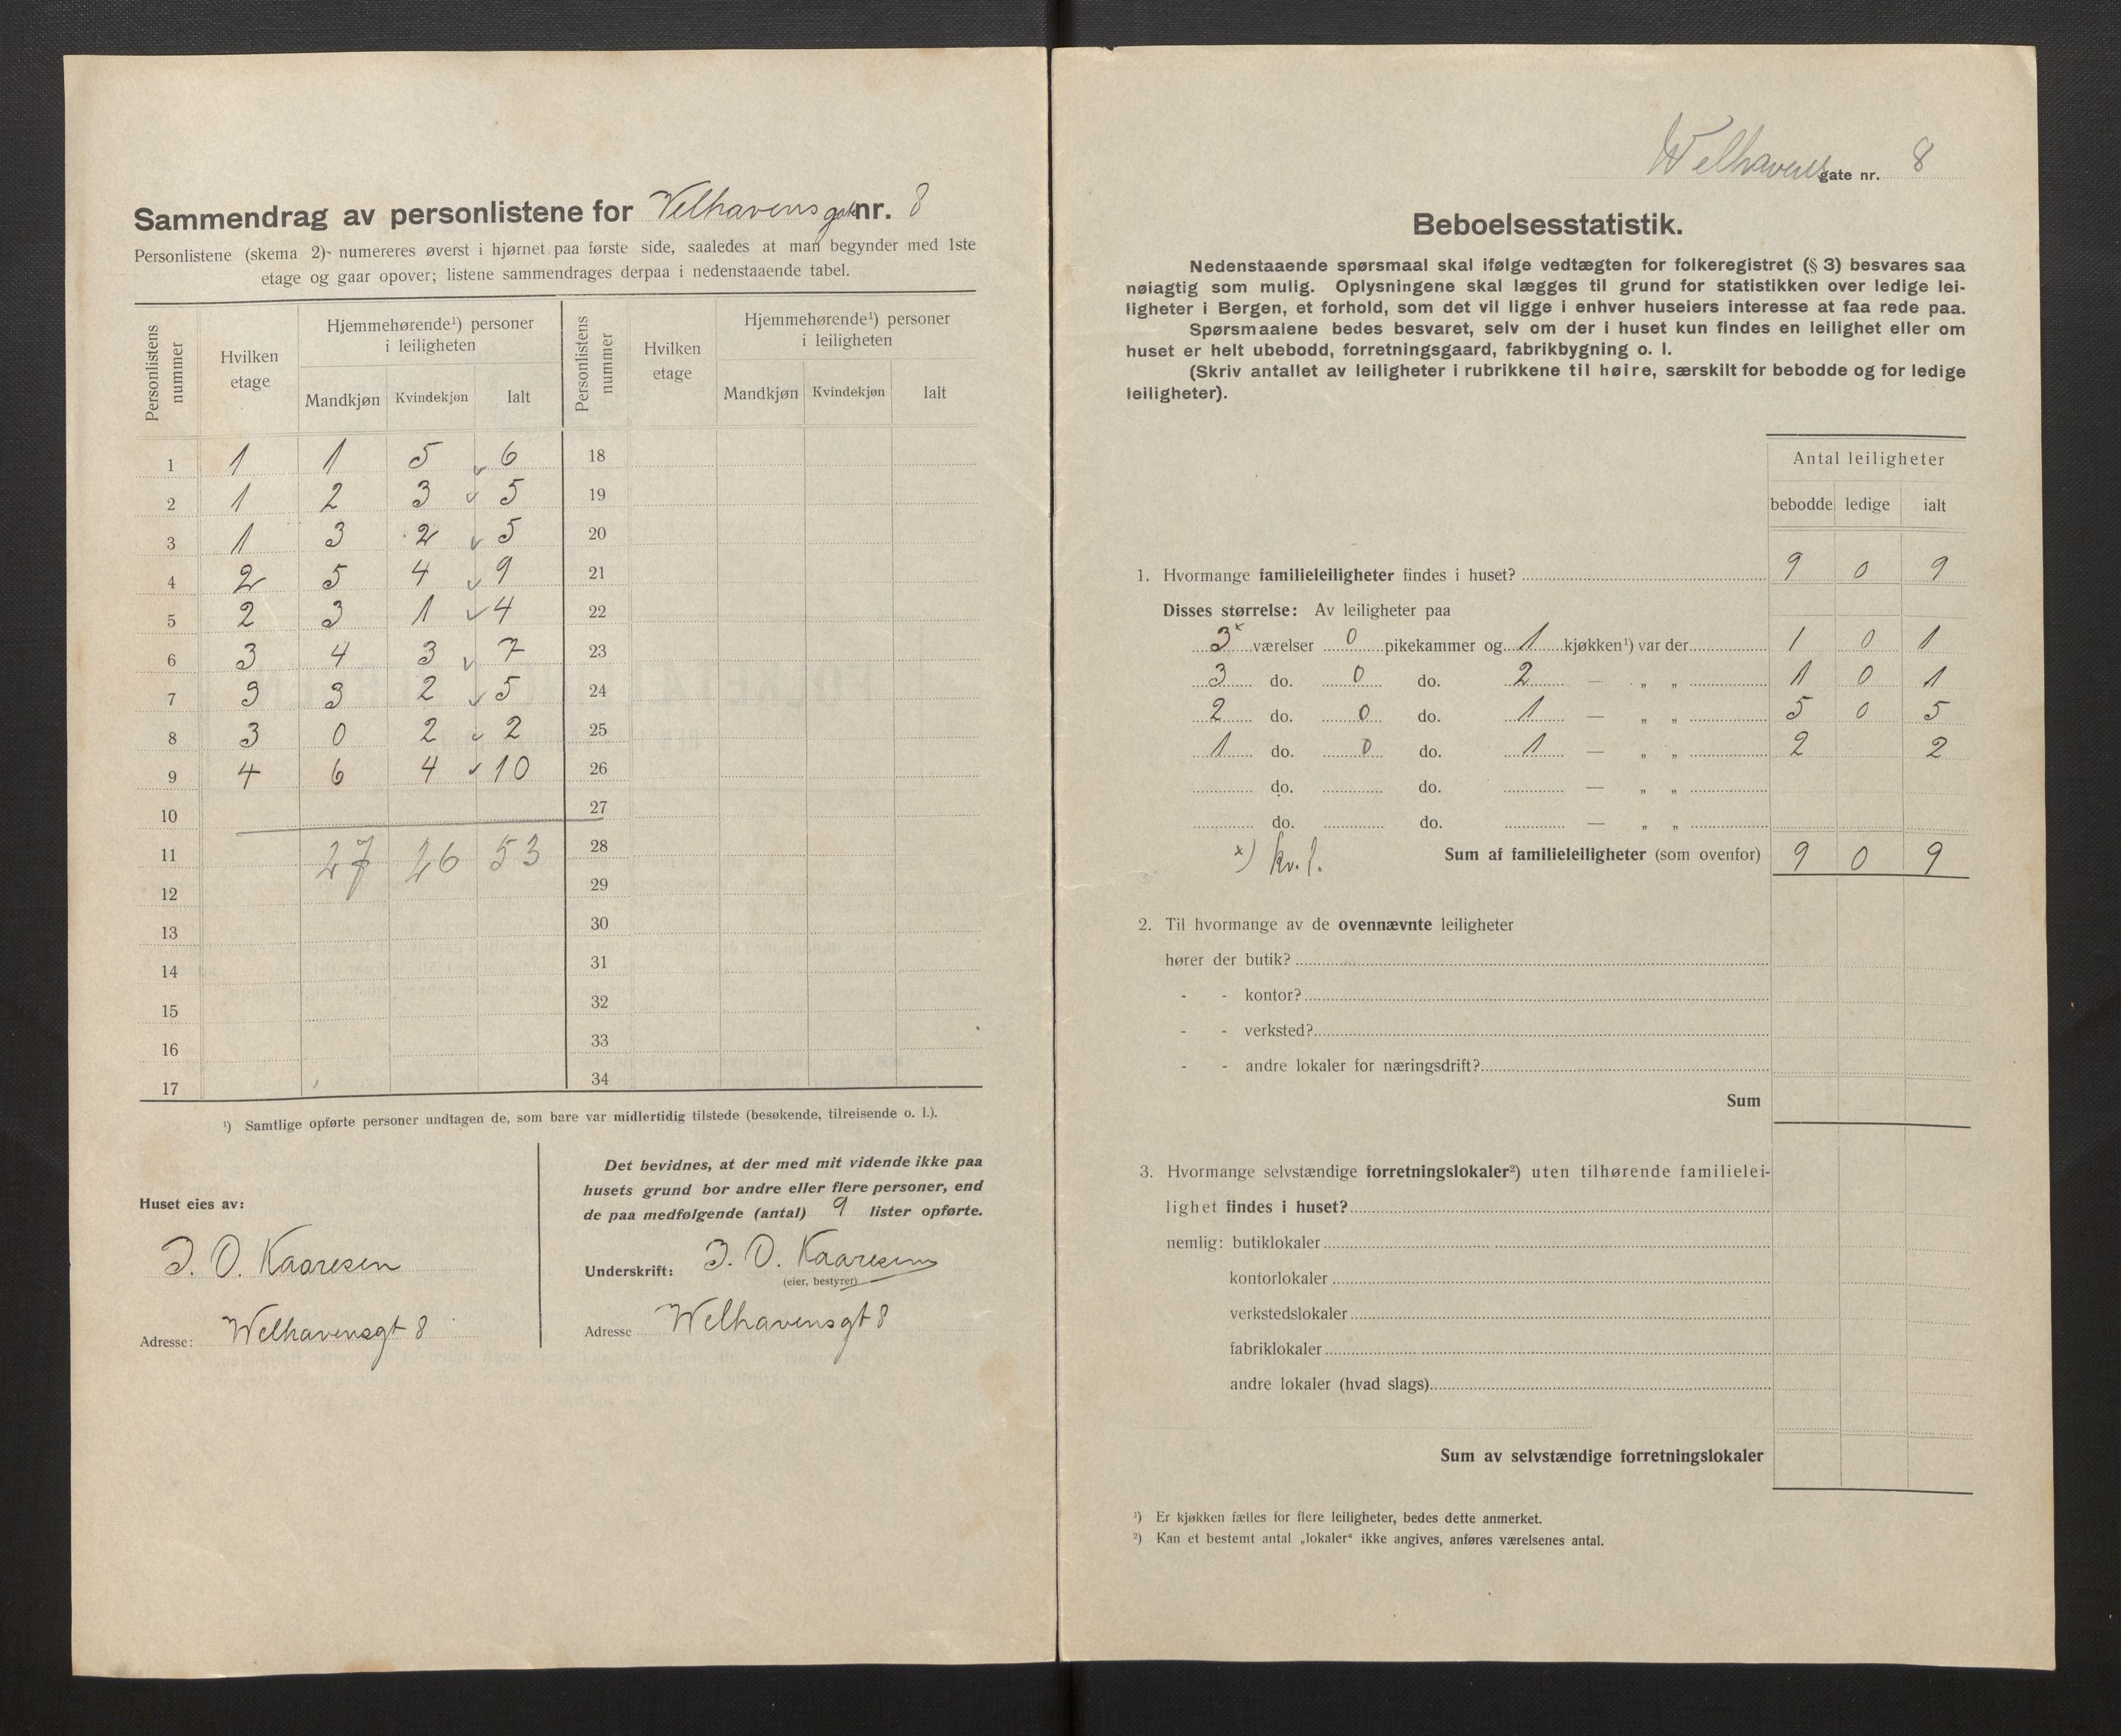 Sammendrag av personlistene for Velhavens gate nr. 8
Personlistene (skema 2) numereres øverst i hjørnet paa første side, saaledes at man begynder med 1ste
etage og gaar opover; listene sammendrages derpaa i nedenstaaende tabel.
Personlistens nummer
Hvilken etage
Hjemmehørende¹) personer i leiligheten
Mandkjøn Kvindekjøn Ialt
Personlistens nummer
Hvilken etage
Hjemmehørende¹) personer i leiligheten
Mandkjøn Kvindekjøn Ialt
1 1 1 5 6 18
2 1 2 3 5 19
3 1 3 2 5 20
4 2 5 4 9 21
5 2 3 1 4 22
6 3 4 3 7 23
7 3 3 2 5 24
8 3 0 2 2 25
9 4 6 4 10 26
10 27
11 27 26 53 28
12 29
13 30
14 31
15 32
16 33
17 34
¹) Samtlige opførte personer undtagen de, som bare var midlertidig tilstede (besøkende, tilreisende o. l.).
Huset eies av:
J. O. Kaaresen
Adresse: Welhavensgt 8
Det bevidnes, at der med mit vidende ikke paa
husets grund bor andre eller flere personer, end
de paa medfølgende (antal) 9 lister opførte.
Underskrift: J. O. Kaaresen
(eier, bestyrer)
Adresse Welhavensgt 8
Welhavens gate nr. 8
Beboelsesstatistik.
Nedenstaaende spørsmaal skal ifølge vedtægten for folkeregistret (§ 3) besvares saa
nøiagtig som mulig. Oplysningene skal lægges til grund for statistikken over ledige lei-
ligheter i Bergen, et forhold, som det vil ligge i enhver huseiers interesse at faa rede paa.
Spørsmaalene bedes besvaret, selv om der i huset kun findes en leilighet eller om
huset er helt ubebodd, forretningsgaard, fabrikbygning o. l.
(Skriv antallet av leiligheter i rubrikkene til høire, særskilt for bebodde og for ledige
leiligheter).
Antal leiligheter
bebodde ledige ialt
1. Hvormange familieleiligheter findes i huset? 9 0 9
Disses størrelse: Av leiligheter paa
3x værelser 0 pikekammer og 1 kjøkken¹) var der 1 0 1
3 do. 0 do. 2 — „ „ 1 0 1
2 do. 0 do. 1 — „ „ 5 0 5
1 do. 0 do. 1 — „ „ 2 2
do. do. — „ „
do. do. — „ „
x) kv. l. Sum af familieleiligheter (som ovenfor) 9 0 9
2. Til hvormange av de ovennævnte leiligheter
hører der butik?
- - kontor?
- - verksted?
- - andre lokaler for næringsdrift?
Sum
3. Hvormange selvstændige forretningslokaler²) uten tilhørende familielei-
lighet findes i huset?
nemlig: butiklokaler
kontorlokaler
verkstedslokaler
fabriklokaler
andre lokaler (hvad slags)
Sum av selvstændige forretningslokaler
¹) Er kjøkken fælles for flere leiligheter, bedes dette anmerket.
²) Kan et bestemt antal „lokaler“ ikke angives, anføres værelsenes antal.